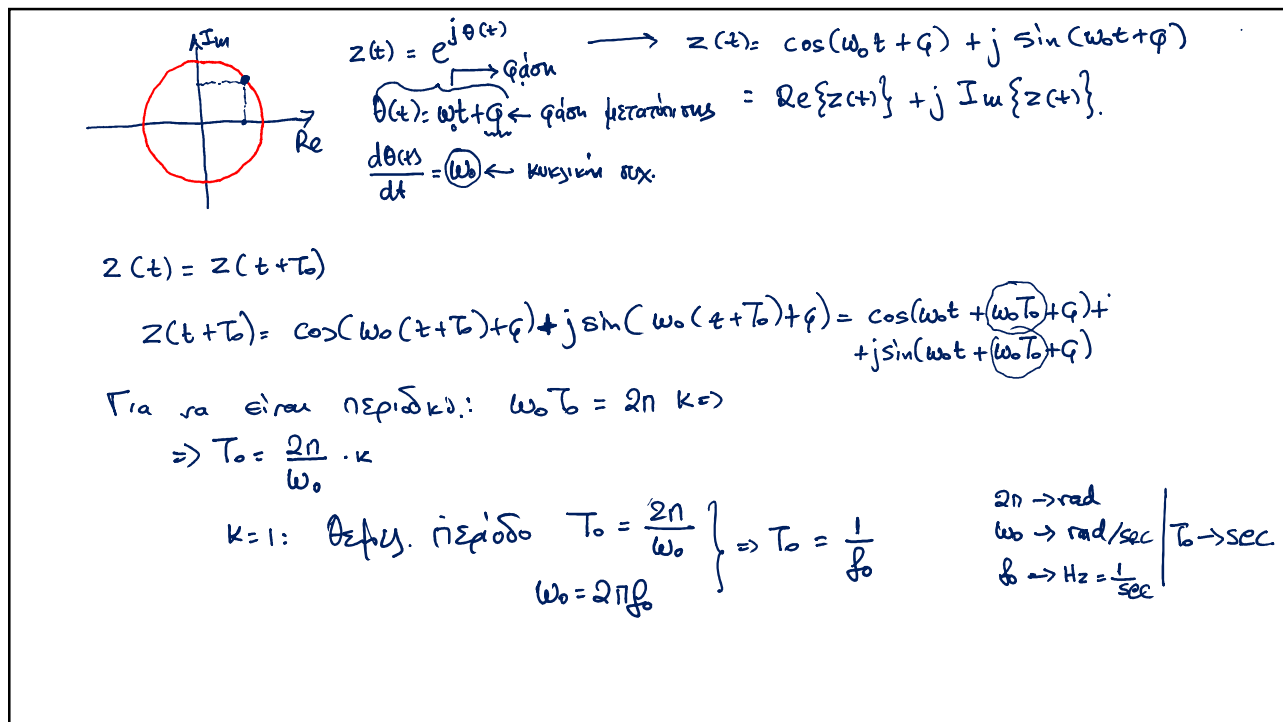 Im
Re
z(t) = e^{jθ(t)} ⟶ z(t) = cos(ω₀t + φ) + j sin(ω₀t + φ)
→ φάση
θ(t) = ω₀t + φ ← φάση μετατόπισης = Re{z(t)} + j Im{z(t)}.
dθ(t)/dt = ω₀ ← κυκλική συχ.
z(t) = z(t+T₀)
z(t+T₀) = cos(ω₀(t+T₀)+φ) + j sin(ω₀(t+T₀)+φ) = cos(ω₀t + ω₀T₀ + φ) +
+ j sin(ω₀t + ω₀T₀ + φ)
Για να είναι περιοδικό: ω₀T₀ = 2π κ =>
=> T₀ = 2π/ω₀ · κ
κ=1: θεμελ. περίοδο T₀ = 2π/ω₀ } => T₀ = 1/f₀
ω₀ = 2πf₀
2π → rad
ω₀ → rad/sec | T₀ → sec
f₀ → Hz = 1/sec